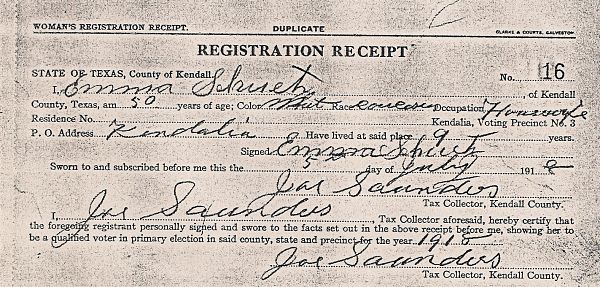 WOMAN'S REGISTRATION RECEIPT. DUPLICATE CLARKE & COURTS, GALVESTON
REGISTRATION RECEIPT
STATE OF TEXAS, County of Kendall. No. 16
I, Emma Schuetz, of Kendall
County, Texas, am 50 years of age; Color Race Occupation Housewife
Residence No. Kendalia, Voting Precinct No. 3
P. O. Address Kendalia. Have lived at said place 9 years.
Signed Emma Schuetz
Sworn to and subscribed before me this the 5 day of July 1918
Joe Saunders
Tax Collector, Kendall County.
I, Joe Saunders, Tax Collector aforesaid, hereby certify that
the foregoing registrant personally signed and swore to the facts set out in the above receipt before me, showing her to
be a qualified voter in primary election in said county, state and precinct for the year 1918
Joe Saunders
Tax Collector, Kendall County.